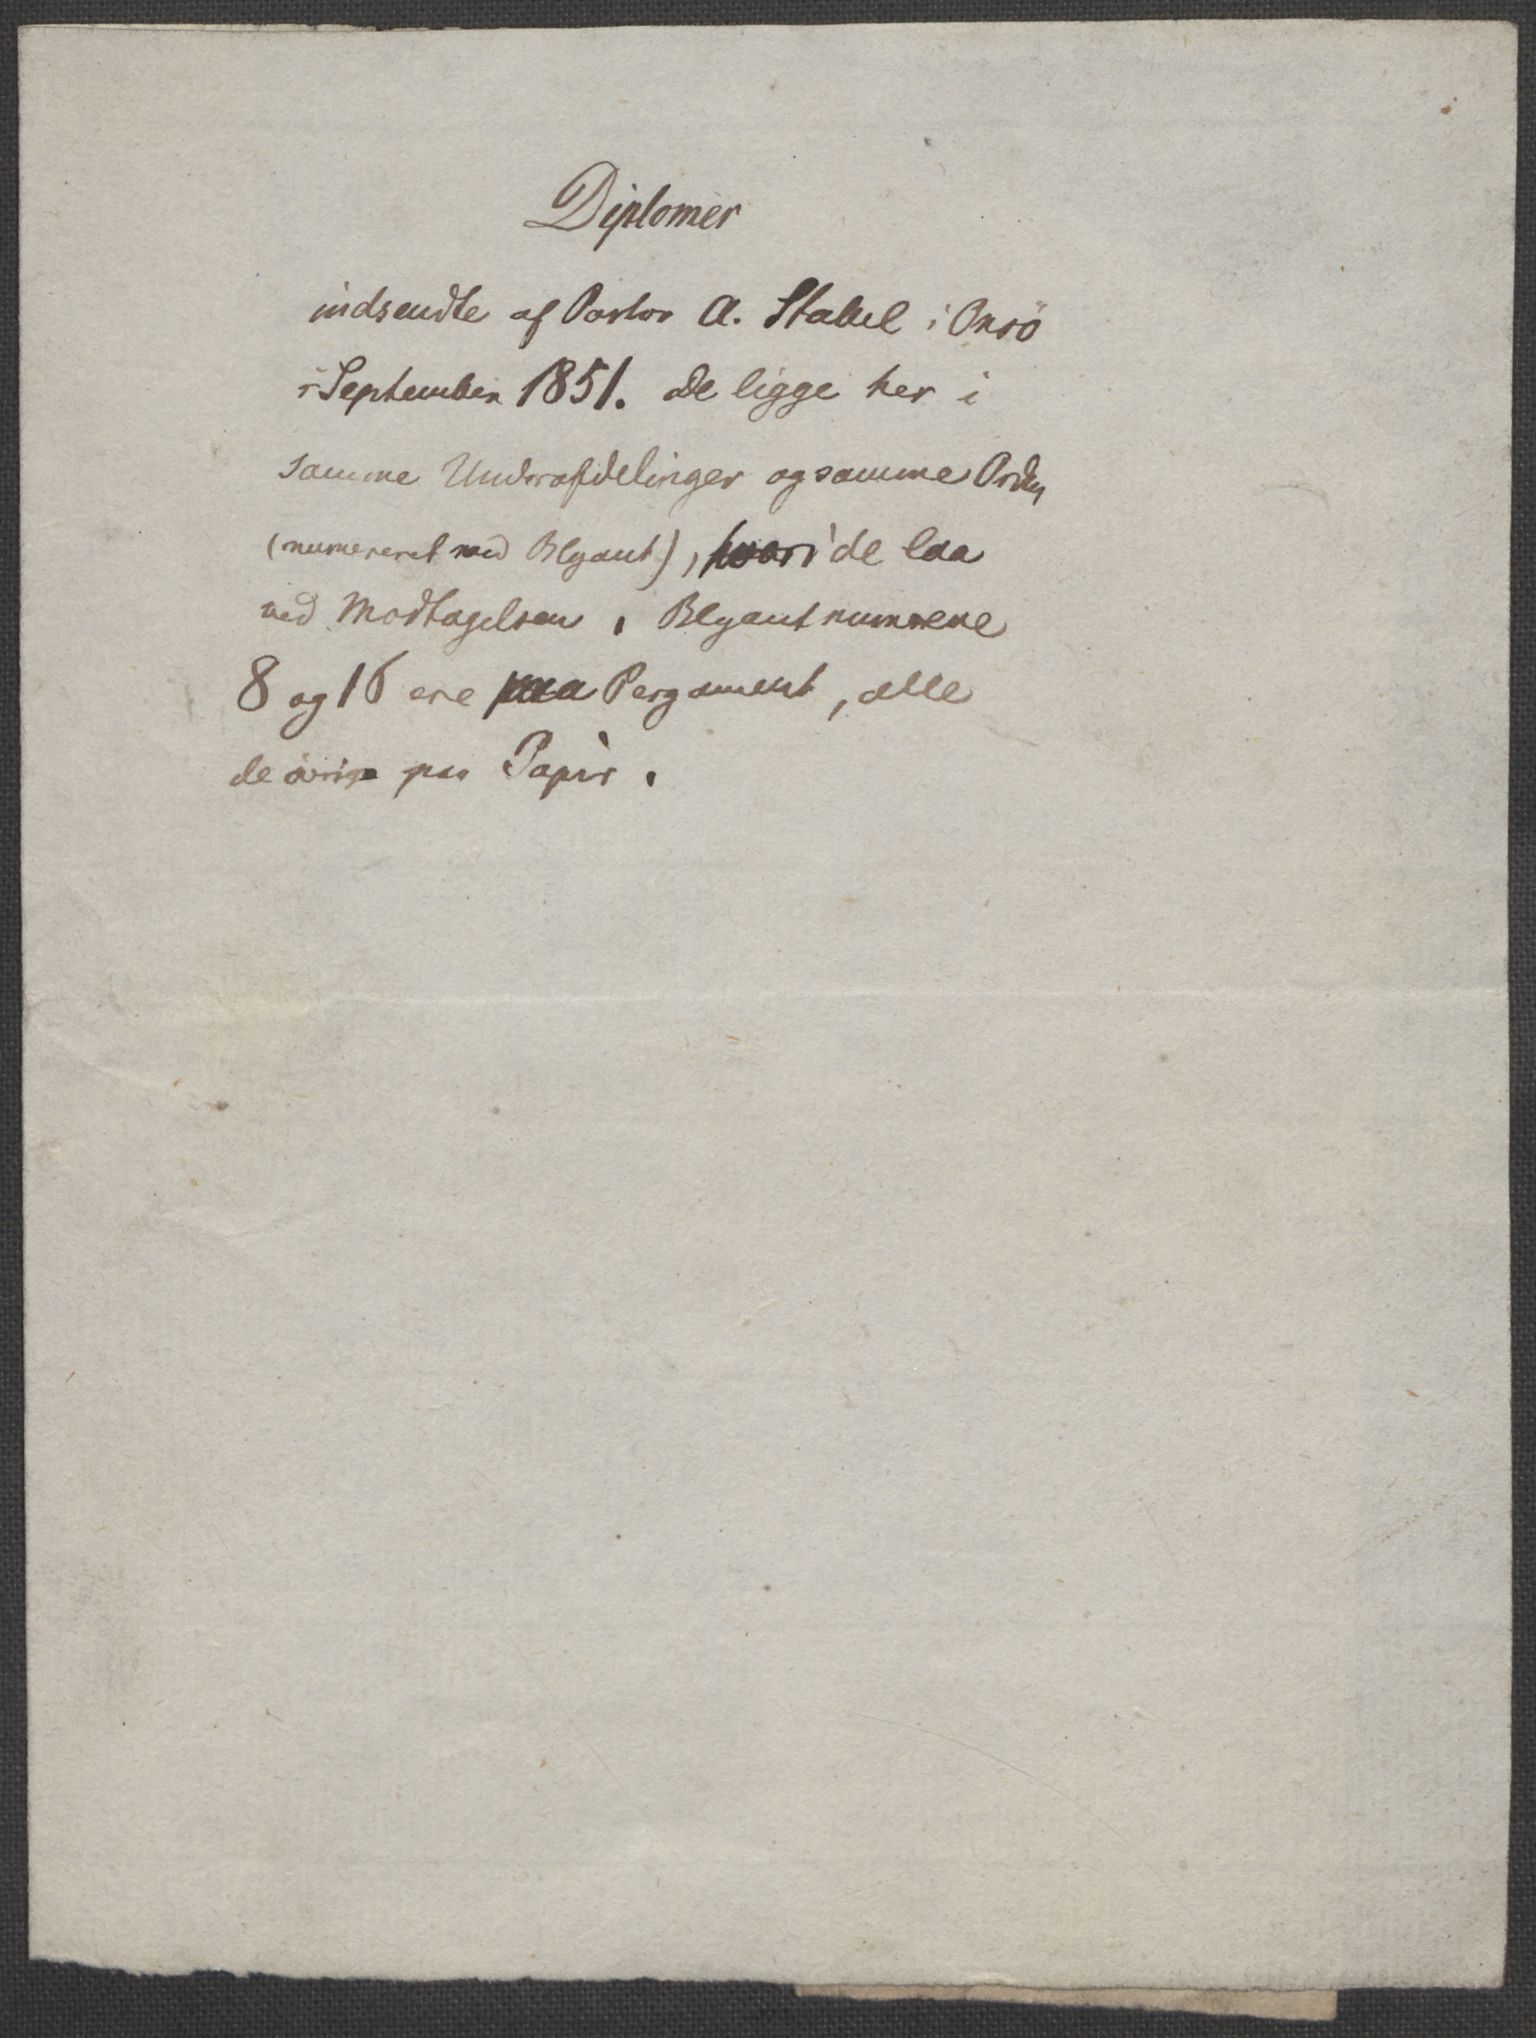 Diplomer
indsendte af Pastor A. Stabel i Onsö
i September 1851. De ligge her i
samme Underafdelinger og samme Orden
(numereret med Blyant), hvori de laa
ved Modtagelsen. Blyantnumrene
8 og 16 ere paa Pergament, alle
de övrige paa Papir.